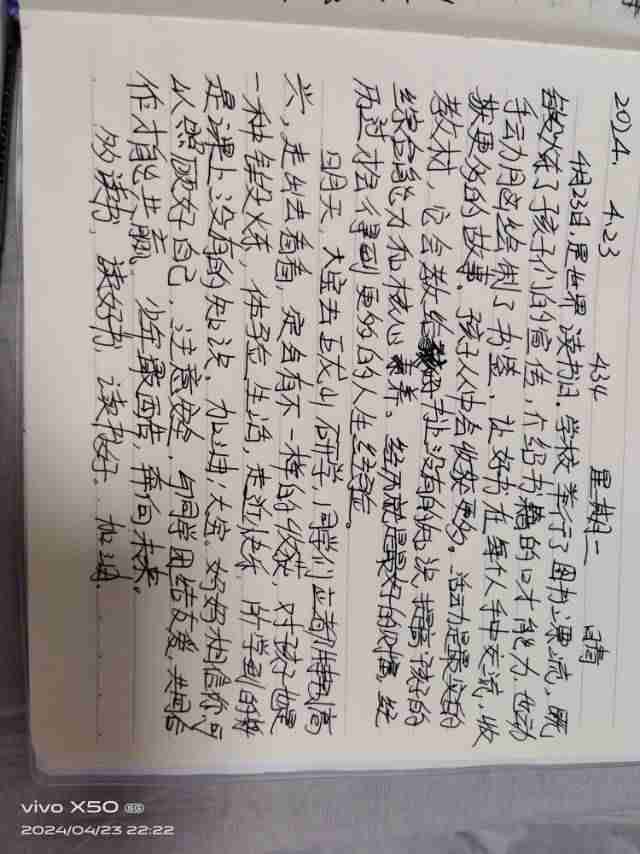 2024. 4.23 434 星期二 晴
4月23日,是世界读书日。学校举行了图书漂流,既
锻炼了孩子们的宣传,介绍书籍的口才能力,也动
手动力的绘制了书签,让好书在每个人手中交流,收
获更多的故事。孩子从中会收获更多。活动是最实的
教材,它会教给书上没有的知识,提高孩子的
综合能力和核心素养。经历就是最好的习惯,经
历过才会得到更多的人生经验。
明天,大宝去玉成山研学,同学们应都很高
兴,走出去看看,定会有不一样的收获,对孩子也是
一种锻炼,体验生活,走近快乐,所学到的将
是课上没有的知识。加油,大宝,妈妈相信你可
以照顾好自己,注意安全,与同学团结友爱,共同合
作才能共赢。少年最西倍,奔向未来。
多读书,读好书,读书好。加油.
vivo X50 5G
2024/04/23 22:22